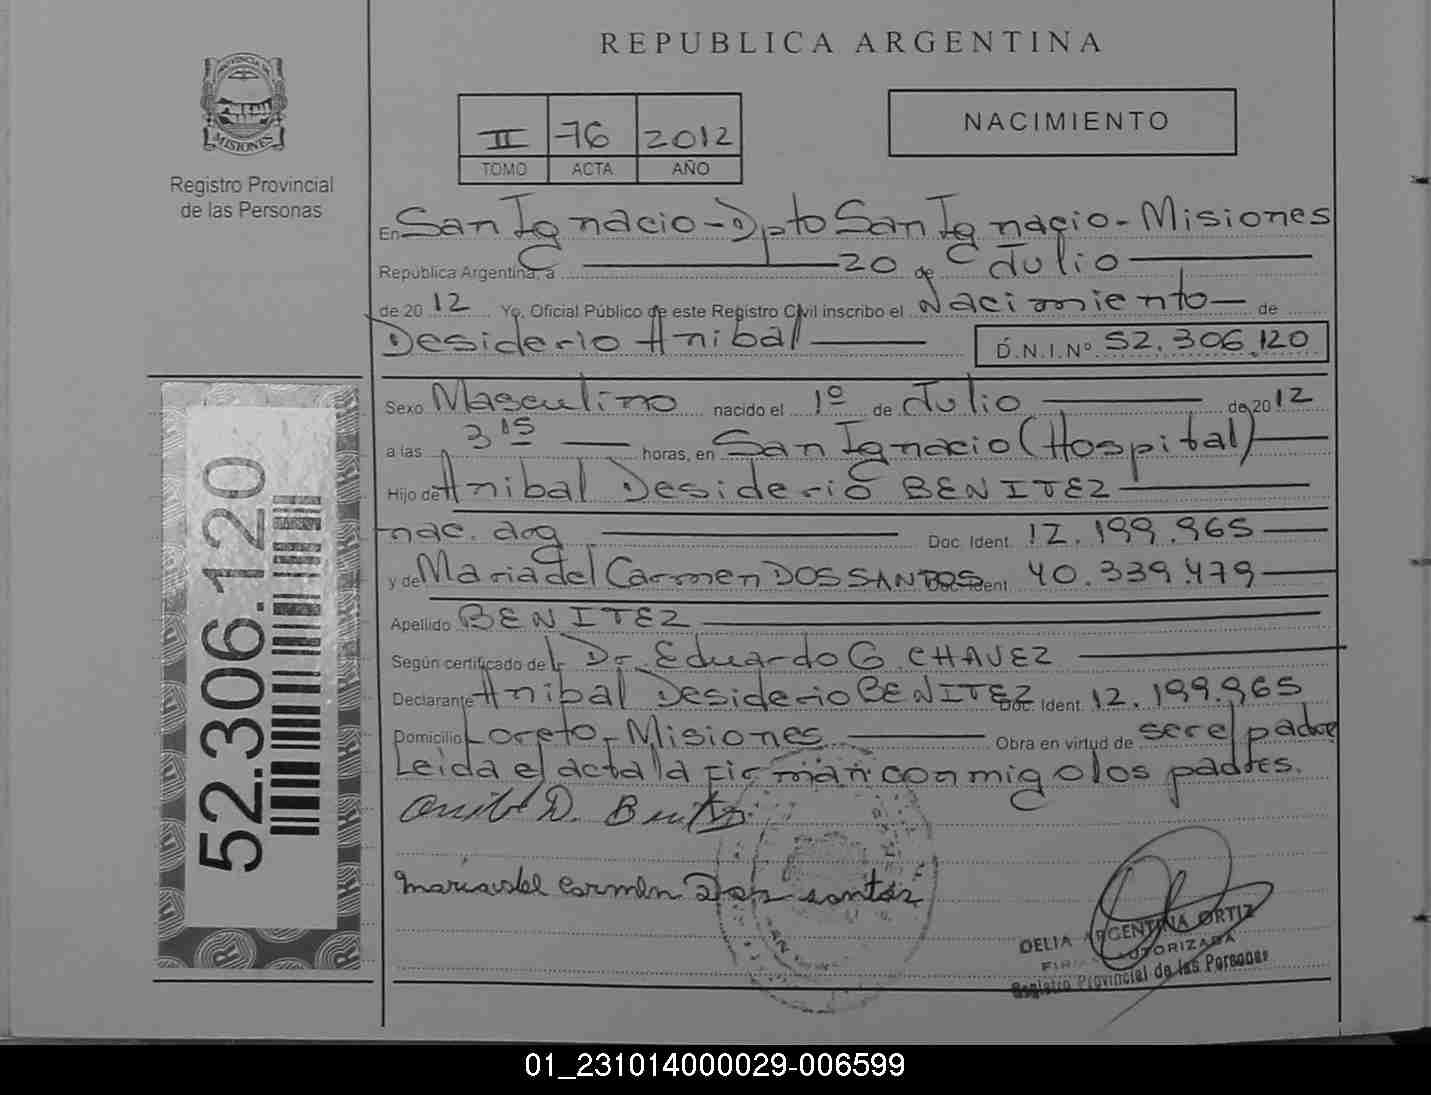 REPUBLICA ARGENTINA
PROVINCIA DE
MISIONES
Registro Provincial
de las Personas
II 76 2012
TOMO ACTA AÑO
NACIMIENTO
En San Ignacio - Dpto San Ignacio - Misiones
República Argentina, a 20 de Julio
de 2012 Yo, Oficial Público de este Registro Civil inscribo el Nacimiento de
Desiderio Anibal D.N.I.Nº 52.306.120
Sexo Masculino nacido el 1º de Julio de 2012
a las 3 15 horas, en San Ignacio (Hospital)
Hijo de Anibal Desiderio BENITEZ
nac. arg Doc. Ident. 12.199.965
y de Maria del Carmen DOS SANTOS Doc. Ident. 40.339.479
Apellido BENITEZ
Según certificado del Dr. Eduardo G. CHAVEZ
Declarante Anibal Desiderio BENITEZ Doc. Ident. 12.199.965
Domicilio Loreto - Misiones Obra en virtud de ser el padre
Leida el acta la firman conmigo los padres.
D. Benitez
Maria del Carmen Dos santos
DELIA ARGENTINA ORTIZ
FIRMA AUTORIZADA
Registro Provincial de las Personas
52.306.120
01_231014000029-006599